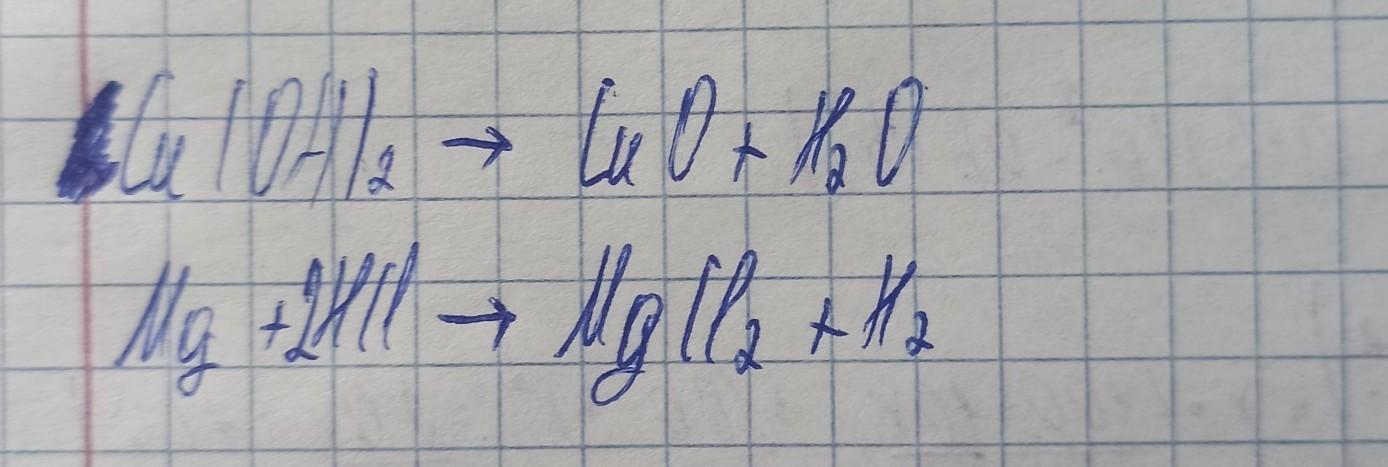 Cu(OH)₂ → CuO + H₂O
Mg + 2HCl → MgCl₂ + H₂